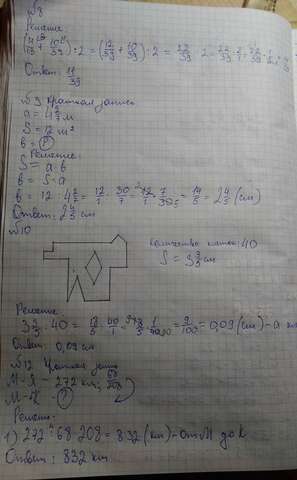 №8
Решение:
(4/13 + 10/39) : 2 = (12/39 + 10/39) : 2 = 22/39 : 2 = 22/39 : 2/1 = 22/39 · 1/2 =
Ответ: 11/39
№9 Краткая запись
a = 4 2/7 м
S = 12 м²
b = ?
Решение:
S = a · b
b = S : a
b = 12 : 4 2/7 = 12/1 : 30/7 = 12/1 · 7/30 = 14/5 = 2 4/5 (см)
Ответ: 2 4/5 см
№10
Количество клеток: 40
S = 3 3/5 см
Решение
3 3/5 : 40 = 18/5 : 40/1 = 18/5 · 1/40 = 9/100 = 0,09 (см) - а
Ответ: 0,09 см
№12 Краткая запись
М-Я - 272 км, 68/208
М-К - ?
Решение:
1) 272 : 68 · 208 = 832 (км) - от М до К
Ответ: 832 км